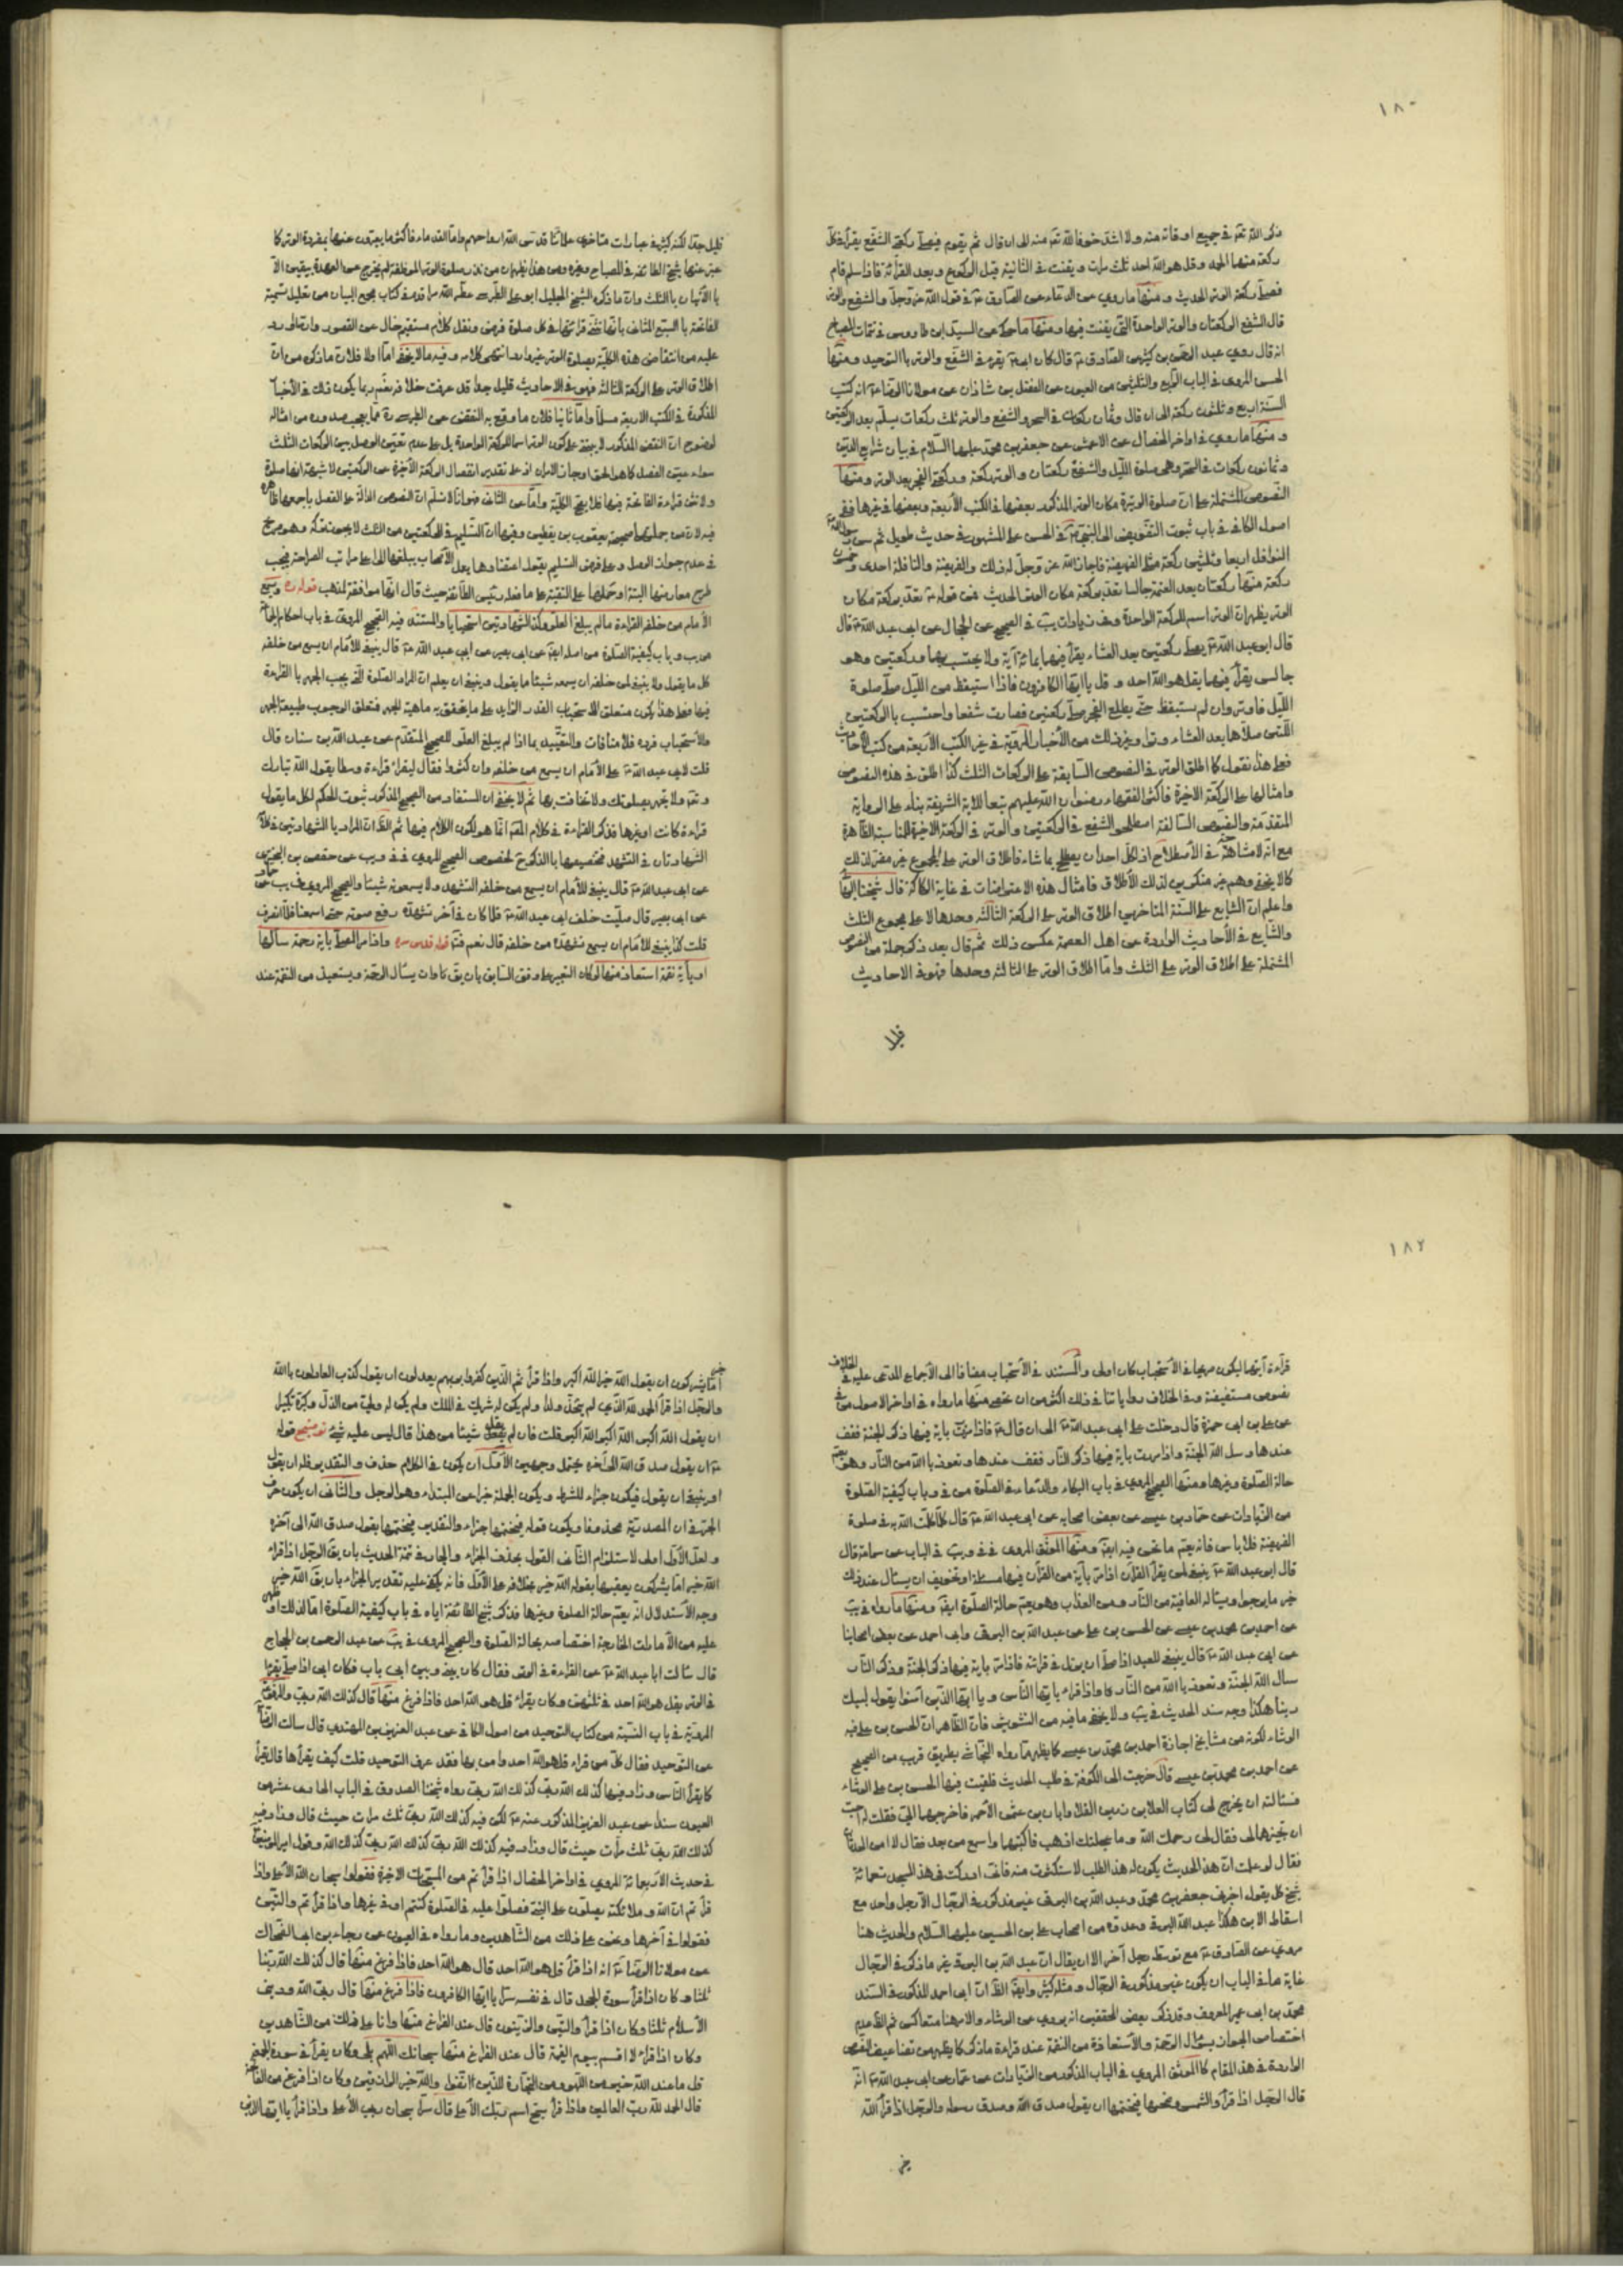 ١٨٠
ذكر الله تعم في جميع اوقاته منه ولا اشد خوفا لله تعم منه الى ان قال ثم يقوم فيصلى ركعتى الشفع يقرأ في كل
ركعة منها الحمد وقل هو الله احد ثلث مرات ويقنت في الثانية قبل الركوع وبعد القرائة فاذا سلم قام
فصلى ركعة الوتر الحديث ومنها ما روي عن الدعاء عن الصادق ع في قول الله عز وجل والشفع والوتر
قال الشفع الركعتان والوتر الواحدة التى يقنت فيها ومنها ما حكى عن السيد ابن طاووس في تتمات المصباح
انه قال روي عبد الرحمن بن كثير عن الصادق ع قال كان ابى ع يقرء في الشفع والوتر بالتوحيد ومنها
الحسن المروى في الباب الرابع والثلثين من العيون عن الفضل بن شاذان عن مولانا الرضا ع انه كتب
السنة اربع وثلثون ركعة الى ان قال وثمان ركعات في السحر والشفع والوتر ثلث ركعات يسلم بعد الركعتين
ومنها ما روي في اواخر الخصال عن الاعمش عن جعفر بن محمد عليهما السلام في بيان شرايع الدين
وثمانون ركعات في السحر وهى صلوة الليل والشفع ركعتان والوتر ركعة وركعتا الفجر بعد الوتر ومنها
النصوص المشتملة على ان صلوة الوتيرة مكان الوتر المذكور بعضها في الكتب الأربعة وبعضها في غيرها ففى
اصول الكافي في باب ثبوت التفويض الى النبي ص في الحسن على المشهور في حديث طويل ثم سن رسول الله ص
النوافل اربعا وثلثين ركعة مثلى الفريضة فاجاز الله عز وجل له ذلك والفريضة والنافلة احدى وخمسون
ركعة منها ركعتان بعد العتمة جالسا تعد بركعة مكان الوتر الحديث فمن قوله ع تعد بركعة مكان
الوتر يظهر ان الوتر اسم للركعة الواحدة وفي زيادات يب في الصحيح عن الحجال عن ابى عبد الله ع قال
قال ابو عبد الله ع يصلى ركعتين بعد العشاء يقرأ فيهما بمائة آية ولا يحتسب بهما وركعتين وهو
جالس يقرأ فيهما بقل هو الله احد وقل يا ايها الكافرون فاذا استيقظ من الليل صلى صلوة
الليل واوتر وان لم يستيقظ حتى يطلع الفجر صلى ركعتين فصارت شفعا واحتسب بالركعتين
اللتين صلاها بعد العشاء وترا وغير ذلك من الأخبار المروية في غير الكتب الأربعة من كتب الاحاديث
فعلى هذا نقول كما اطلق الوتر في النصوص السابقة على الركعات الثلث كذا اطلق في هذه النصوص
وامثالها على الركعة الاخيرة فاكثر الفقهاء رضوان الله عليهم تبعا للاية الشريفة بناء على الرواية
المتقدمة والنصوص السالفة اصطلحوا الشفع في الركعتين والوتر في الركعة الاخيرة للمناسبة الظاهرة
مع انه لا مشاحة في الأصطلاح اذ لكل احد ان يصطلح بما شاء فاطلاق الوتر على المجموع غير مضر لذلك
كما لا يخفى وهم غير منكرين لذلك الأطلاق فامثال هذه الاعتراضات في غاية الركاكة قال شيخنا البهائي
واعلم ان الشايع على السنة المتاخرين اطلاق الوتر على الركعة الثالثة وحدها لا على مجموع الثلث
والشايع في الأحاديث الواردة عن اهل العصمة عكس ذلك ثم قال بعد ذكر جملة من النصوص
المشتملة على اطلاق الوتر على الثلث واما اطلاق الوتر على الثالثة وحدها فهو في الاحاديث
قليل جدا لكنه كثير في عبارات متاخرى علمائنا قدس الله ارواحهم واما القدماء فاكثر ما يعبرون عنها بمفردة الوتر كما
عبر عنها شيخ الطائفة في المصباح وغيره ومن هذا يظهر ان من نذر صلوة الوتر الموظفة لم يخرج عن العهدة بيقين الا
بالأتيان بالثلث وان ما ذكره الشيخ الجليل ابو على الطبرسى عطر الله مرقده في كتاب مجمع البيان من تعليل تسمية
الفاتحة بالسبع المثانى بانها تثنى قرائتها في كل صلوة فرض ونفل كلام مستقيم خال عن القصور وان ما اورد
عليه من انتقاض هذه الكلية بصلوة الوتر غير وارد انتهى كلامه وفيه ما لا يخفى اما اولا فلان ما ذكره من ان
اطلاق الوتر على الركعة الثالثة فهو في الاحاديث قليل جدا قد عرفت خلافه نعم ربما يكون ذلك في الأخبار
المذكورة في الكتب الاربعة مسلما واما ثانيا فلان ما وقع به النقض عن الطبرسى ره مما يعجب صدوره من امثاله
لوضوح ان النقض المذكور لا يبتنى على كون الوتر اسما للركعة الواحدة بل على عدم تعين الوصل بين الركعات الثلث
سواء تعين الفصل كما هو الحق او جاز الامران اذ على تقدير انفصال الركعة الأخيرة عن الركعتين لا شبهة انها صلوة
ولا تثنى قراءة الفاتحة فيها فلا يصح الكلية واما عن الثانى فهو انا لا نسلم ان النصوص الدالة على الفصل باجمعها ظاهرة
فيه لان من جملتها صحيحة يعقوب بن يقطين وفيها ان التسليم في الركعتين من الثلث لا يجوز تركه وهو صريح
في عدم جواز الوصل وعلى فرض التسليم نقول اعتضادها بعمل الأصحاب يبلغها الى اعلى مراتب الصراحة فيجب
طرح معارضها البتة او حملها على التقية على ما فعله رئيس الطائفة حيث قال انها موافقة لمذهب قوله ره ويسمع
الأمام من خلفه القراءة ما لم يبلغ العلو وكذا الشهادتين استحبابا والمستند فيه الصحيح المروى في باب احكام الجماعة
من يب وباب كيفية الصلوة من اصله ايضا عن ابى بصير عن ابى عبد الله ع قال ينبغى للأمام ان يسمع من خلفه
كل ما يقول ولا ينبغى لمن خلفه ان يسمعه شيئا مما يقول وينبغى ان يعلم ان المراد الصلوة التى يجب الجهر بالقراءة
فيها فعلى هذا يكون متعلق الاستحباب القدر الزايد على ما يتحقق به ماهية الجهر فمتعلق الوجوب طبيعة الجهر
والأستحباب فرده فلا منافات والتقييد بما اذا لم يبلغ العلو للصحيح المتقدم عن عبد الله بن سنان قال
قلت لابى عبد الله ع على الأمام ان يسمع من خلفه وان كثروا فقال ليقراء قراءة وسطا يقول الله تبارك
وتعم ولا تجهر بصلوتك ولا تخافت بها ثم لا يخفى ان المستفاد من الصحيح المذكور ثبوت الحكم لكل ما يقول
قراءة كانت او غيرها فذكر القراءة في كلام المصنف انما هو لكون الكلام فيها ثم الظ ان المراد بالشهادتين
الشهادتان في التشهد تخصيصهما بالذكر لخصوص الصحيح المروي في فى ويب عن حفص بن البخترى
عن ابى عبد الله ع قال ينبغى للأمام ان يسمع من خلفه التشهد ولا يسمعونه شيئا والصحيح المروى في يب عن حماد
عن ابى بصير قال صليت خلف ابى عبد الله ع فلما كان في آخر تشهده رفع صوته حتى اسمعنا فلما انصرف
قلت كذا ينبغى للأمام ان يسمع تشهده من خلفه قال نعم قوله قدس سره واذا مر المصلى باية رحمة سألها
او بآية نقمة استعاذ منها لو كان التعبير على وفق السابق بان يق كاوان يسأل الرحمة ويستعيذ من النقمة عند
فلا
١٨٢
قرآءة آيتها ليكون صريحا في الأستحباب كان اولى والمستند في الأستحباب مضافا الى الأجماع المدعى عليه في الخلاف
نصوص مستفيضة وفي الخلاف رواياتنا في ذلك اكثر من ان تحصى منها ما رواه في اواخر الاصول من في
عن على بن ابى حمزة قال دخلت على ابى عبد الله ع الى ان قال ع فاذا مررت باية فيها ذكر الجنة فقف
عندها وسل الله الجنة واذا مررت باية فيها ذكر النار فقف عندها وتعوذ بالله من النار وهو يعم
حالة الصلوة وغيرها ومنها الصحيح المروى في باب البكاء والدعاء في الصلوة من فى وباب كيفية الصلوة
من الزيادات عن حماد بن عيسى عن بعض اصحابه عن ابى عبد الله ع قال كلما كلمت الله به في صلوة
الفريضة فلا باس فانه يعم ما نحن فيه ايضا ومنها الموثق المروى في فى ويب في الباب عن سماعة قال
قال ابو عبد الله ع ينبغى لمن يقرأ القرآن اذا مر بآية من القرآن فيها مسئلة او تخويف ان يسئال عند ذلك
خير ما يرجو ويساله العافية من النار ومن العذاب وهو يعم حالة الصلوة ايضا ومنها ما رواه في يب
عن احمد بن محمد بن عيسى عن الحسن بن على عن عبد الله بن البرقى وابى احمد عن بعض اصحابنا
عن ابى عبد الله ع قال ينبغى للعبد اذا صلى ان يرتل في قرائته فاذا مر باية فيها ذكر الجنة وذكر النار
سال الله الجنة وتعوذ بالله من النار كما واذا قراء يا ايها الناس ويا ايها الذين آمنوا يقول لبيك
ربنا هكذا وجه سند الحديث في يب ولا يخفى ما فيه من التشويش فان الظاهر ان الحسن بن على فيه
الوشاء لكونه من مشايخ اجازة احمد بن محمد بن عيسى كما يظهر مما رواه النجاشى بطريق قريب من الصحيح
عن احمد بن محمد بن عيسى قال خرجت الى الكوفة في طلب الحديث فلقيت فيها الحسن بن على الوشاء
فسئالته ان يخرج لى كتاب العلا بن رزين القلا وابان بن عثمن الأحمر فاخرجهما الى فقلت له احب
ان تجيزهما لى فقال لى رحمك الله وما عجلتك اذهب فاكتبهما واسمع من بعد فقال لا امن الحدثان
فقال لو علمت ان هذا الحديث يكون له هذا الطلب لاستكثرت منه فانى ادركت في هذا المسجد تسعمائة
شيخ كل يقول اخبرنى جعفر بن محمد وعبد الله بن البرقى غير مذكور في الرجال الا رجل واحد مع
اسقاط الابن هكذا عبد الله البرقى وعدوه من اصحاب على بن الحسين عليهما السلام والحديث هنا
مروى عن الصادق ع مع توسط رجل آخر الا ان يقال ان عبد الله بن البرقى غير ما ذكر في الرجال
غاية ما في الباب ان يكون غير مذكور في الرجال ومثله كثير وايضا الظ ان ابى احمد المذكور في السند
محمد بن ابى عمير المعروف وقد ذكر بعض المحققين انه يروى عن الوشاء والامر هنا متعاكس ثم الظ عدم
اختصاص الجواز بسؤال الرحمة والأستعاذة من النقمة عند قراءة ما ذكر كما يظهر من تضاعيف النصوص
الواردة في هذا المقام كالموثق المروى في الباب المذكور من الزيادات عن عمار عن ابى عبد الله ع انه
قال الرجل اذا قرأ والشمس وضحها فيختمها ان يقول صدق الله وصدق رسوله والرجل اذا قرأ الله
خير
اما يشركون ان يقول الله خير الله اكبر واذا قرأ ثم الذين كفروا بربهم يعدلون ان يقول كذب العادلون بالله
والرجل اذا قرأ الحمد لله الذي لم يتخذ ولدا ولم يكن له شريك في الملك ولم يكن له ولى من الذل وكبره تكبيرا
ان يقول الله اكبر الله اكبر الله اكبر قلت فان لم يقل شيئا من هذا قال ليس عليه شئ قوله
ع ان يقول صدق الله الى آخره يحتمل وجهين الأول ان يكون في الكلام حذف والتقدير فله ان يقول
او ينبغى ان يقول فيكون جزاء للشرط ويكون الجملة خبرا عن المبتداء وهو الرجل والثانى ان يكون حرف
الجر في ان المصدرية محذوفا ويكون قوله فيختمها جزاء والتقدير فيختمها بقول صدق الله الى آخره
ولعل الأول اولى لاستلزام الثانى القول بحذف الجزاء والجار في تتمة الحديث بان يق الرجل اذا قراء
الله خير اما يشركون يعقبها بقوله الله خير بخلافه على الأول فانه يكفى عليه تقدير الجزاء بان يق الله خير
وجه الأستدلال انه يعم حالة الصلوة وغيرها فذكر شيخ الطائفة اياه في باب كيفية الصلوة اما لذلك او
عليه من الأمارات الخارجة اختصاصه بحالة الصلوة والصحيح المروى في يب عن عبد الرحمن بن الحجاج
قال سئالت ابا عبد الله ع عن القراءة في الوتر فقال كان بينى وبين ابى باب فكان ابى اذا صلى يقرأ
في الوتر بقل هو الله احد في ثلثهن وكان يقراء قل هو الله احد فاذا فرغ منها قال كذلك الله ربى والمرفوع
المروى في باب النسبة من كتاب التوحيد من اصول الكافى عن عبد العزيز بن المهتدى قال سالت الرضا ع
عن التوحيد فقال كل من قراء قل هو الله احد وامن بها فقد عرف التوحيد قلت كيف يقرأها قال يقرأ
كما يقرأ الناس وزاد فيها كذلك الله ربى كذلك الله ربى رواه شيخنا الصدوق في الباب الحادى عشر من
العيون سندا عن عبد العزيز المذكور عنه ع لكن فيه كذلك الله ربى ثلث مرات حيث قال وزاد فيه
كذلك الله ربى ثلث مرات حيث قال وزاد فيه كذلك الله ربى كذلك الله ربى كذلك الله وقول امير المؤمنين ع
في حديث الأربعمائة المروي في اواخر الخصال اذا قرأتم من المسبحات الاخيرة فقولوا سبحان الله الأعلى واذا
قرأتم ان الله وملائكته يصلون على النبى فصلوا عليه في الصلوة كنتم او في غيرها واذا قرأتم والتين
فقولوا في آخرها ونحن على ذلك من الشاهدين وما رواه في العيون عن رجاء بن ابى الضحاك
عن مولانا الرضا ع انه اذا قرأ قل هو الله احد قال هو الله احد فاذا فرغ منها قال كذلك الله ربنا
ثلثا وكان اذا قرأ سورة الجحد قال في نفسه سرا يا ايها الكافرون فاذا فرغ منها قال ربى الله ودينى
الأسلام ثلثا وكان اذا قرأ والتين والزيتون قال عند الفراغ منها وانا على ذلك من الشاهدين
وكان اذا قراء لا اقسم بيوم القيمة قال عند الفراغ منها سبحانك اللهم بلى وكان يقرأ في سورة الجمعة
قل ما عند الله خير من اللهو ومن التجارة للذين اتقوا والله خير الرازقين وكان اذا فرغ من الفاتحة
قال الحمد لله رب العالمين واذا قرأ سبح اسم ربك الأعلى قال سرا سبحان ربى الأعلى واذا قرأ يا ايها الذين